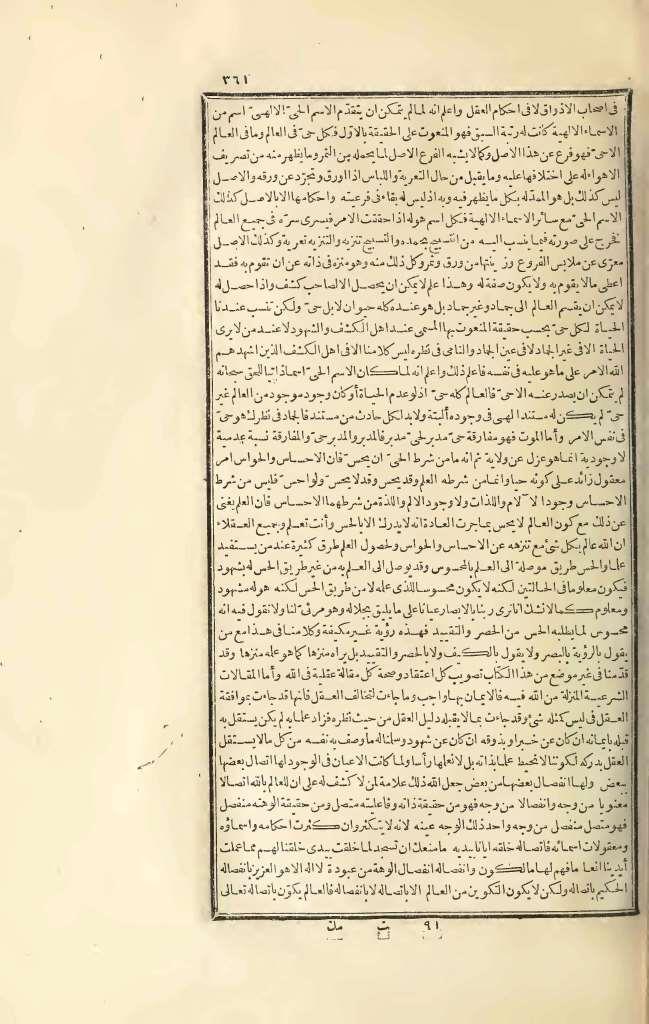 ٣٦١
فى أصحاب الاذواق لا فى احكام العقل واعلم انه لما لم يتمكن ان يتقدّم الاسم الحىّ الالهىّ اسم من
الاسماء الالهية كانت له رتبة السبق فهو المنعوت على الحقيقة بالاوّل فكل حىّ فى العالم وما فى العالم
الا حىّ فهو فرع عن هذا الاصل وكما لا يشبه الفرع الاصل لما يحمله من الثمر وما يظهر منه من تصريف
الاهواء له على اختلافها عليه وما يقبل من حال التعرية واللباس اذا اورق وتجرّد عن ورقه والاصل
ليس كذلك بل هو الممدّ له بكل ما يظهر فيه وبه اذ ليس له بقاء فى فرعيته واحكامها الا بالاصل كذلك
الاسم الحىّ مع سائر الاسماء الالهية فكل اسم هو له اذا حققت الامر فيسرى سرّه فى جميع العالم
فخرج على صورته فيما ينسب اليه من التسبيح بحمده والتسبيح تنزيه والتنزيه تعرية وكذلك الاصل
معرّى عن ملابس الفروع وزينتها من ورق وثمر وكل ذلك منه وهو منزه فى ذاته عن ان تقوم به فقد
اعطى ما لا يقوم به ولا يكون صفة له وهذا علم لا يمكن ان يحصل الا لصاحب كشف واذا حصل له
لا يمكن ان يقسم العالم الى جماد وغير جماد بل هو عنده كله حيوان لا بل حىّ ولكن تنسب عندنا
الحياة لكل حىّ بحسب حقيقة المنعوت بها المسمى عند اهل الكشف والشهود لا عند من لا يرى
الحياة الا فى غير الجماد لا فى عين الجماد والنامى فى نظره ليس كلامنا الا فى اهل الكشف الذين اشهدهم
الله الامر على ما هو عليه فى نفسه فاعلم ذلك واعلم انه لما كان الاسم الحىّ اسما ذاتيا للحق سبحانه
لم يتمكن ان يصدر عنه الا حىّ فالعالم كله حىّ اذ لو عدم الحياة أو كان وجود موجود من العالم غير
حىّ لم يكن له مستند الهىّ فى وجوده ألبتة ولا بد لكل حادث من مستند فالجماد فى نظرك هو حىّ
فى نفس الامر وأما الموت فهو مفارقة حىّ مدبر لحىّ مدبر فالمدبر والمدبر حىّ والمفارقة نسبة عدمية
لا وجودية انما هو عزل عن ولاية ثم انه ما من شرط الحىّ ان يحس فان الاحساس والحواس امر
معقول زائد على كونه حيا وانما من شرطه العلم وقد يحس وقد لا يحس ولو احس فليس من شرط
الاحساس وجود الآلام واللذات ولا وجود الالم واللذة من شرطهما الاحساس فان العلم يغنى
عن ذلك مع كون العالم لا يحس بما جرت العادة انه لا يدرك الا بالحس وأنت تعلم وجميع العقلاء
ان الله عالم بكل شئ مع تنزهه عن الاحساس والحواس ولحصول العلم طرق كثيرة عند من يستفيد
علما والحس طريق موصلة الى العلم بالمحسوس وقد يوصل الى العلم به من غير طريق الحس له بشهود
فيكون معلوما فى الحالتين لكنه لا يكون محسوسا للذى علمه لا من طريق الحس لكنه هو له مشهود
ومعلوم كما لا نشك انا نرى ربنا بالابصار عيانا على ما يليق بجلاله وهو مرئىّ لنا ولا نقول فيه انه
محسوس لما يطلبه الحس من الحصر والتقييد فهذه رؤية غير مكيفة وكلامنا فى هذا مع من
يقول بالرؤية بالبصر ولا يقول بالكيف ولا بالحصر والتقييد بل يراه منزها كما هو علمه منزها وقد
قدّمنا فى غير موضع من هذا الكتاب تصويب كل اعتقاد وصحة كل مقالة عقلية فى الله وأما المقالات
الشرعية المنزلة من الله فيه فالايمان بها واجب وما جاءت لتخالف العقل فانها قد جاءت بموافقة
العقل فى ليس كمثله شئ وقد جاءت بما لا يقبله دليل العقل من حيث نظره فزاد علما به لم يكن يستقل به
قبله بايمانه ان كان عن خبر او بذوقه ان كان عن شهود وسلمنا له ما وصف به نفسه من كل ما لا يستقل
العقل بدركه لكوننا لا نحيط علما بذاته بل لا نعلمها رأسا ولما كانت الاعيان فى الوجود لها اتصال بعضها
ببعض ولها انفصال بعضها من بعض جعل الله ذلك علامة لمن لا كشف له على ان للعالم بالله اتصالا
معنويا من وجه وانفصالا من وجه فهو من حقيقة ذاته وفاعليته متصل ومن حقيقة الوهته منفصل
فهو متصل منفصل من وجه واحد ذلك الوجه عينه لانه لا يتكثر وان كثرت احكامه واسماؤه
ومعقولات اسمائه فاتصاله خلقه ايانا بيديه ما منعك ان تسجد لما خلقت بيدى خلقنا لهم مما عملت
أيدينا انعاما فهم لها مالكون وانفصاله انفصال الوهة من عبودة لا اله الا هو العزيز بانفصاله
الحكيم باتصاله ولكن لا يكون التكوين من العالم الا باتصاله لا بانفصاله فالعالم يكوّن باتصاله تعالى
٩١ ت مك